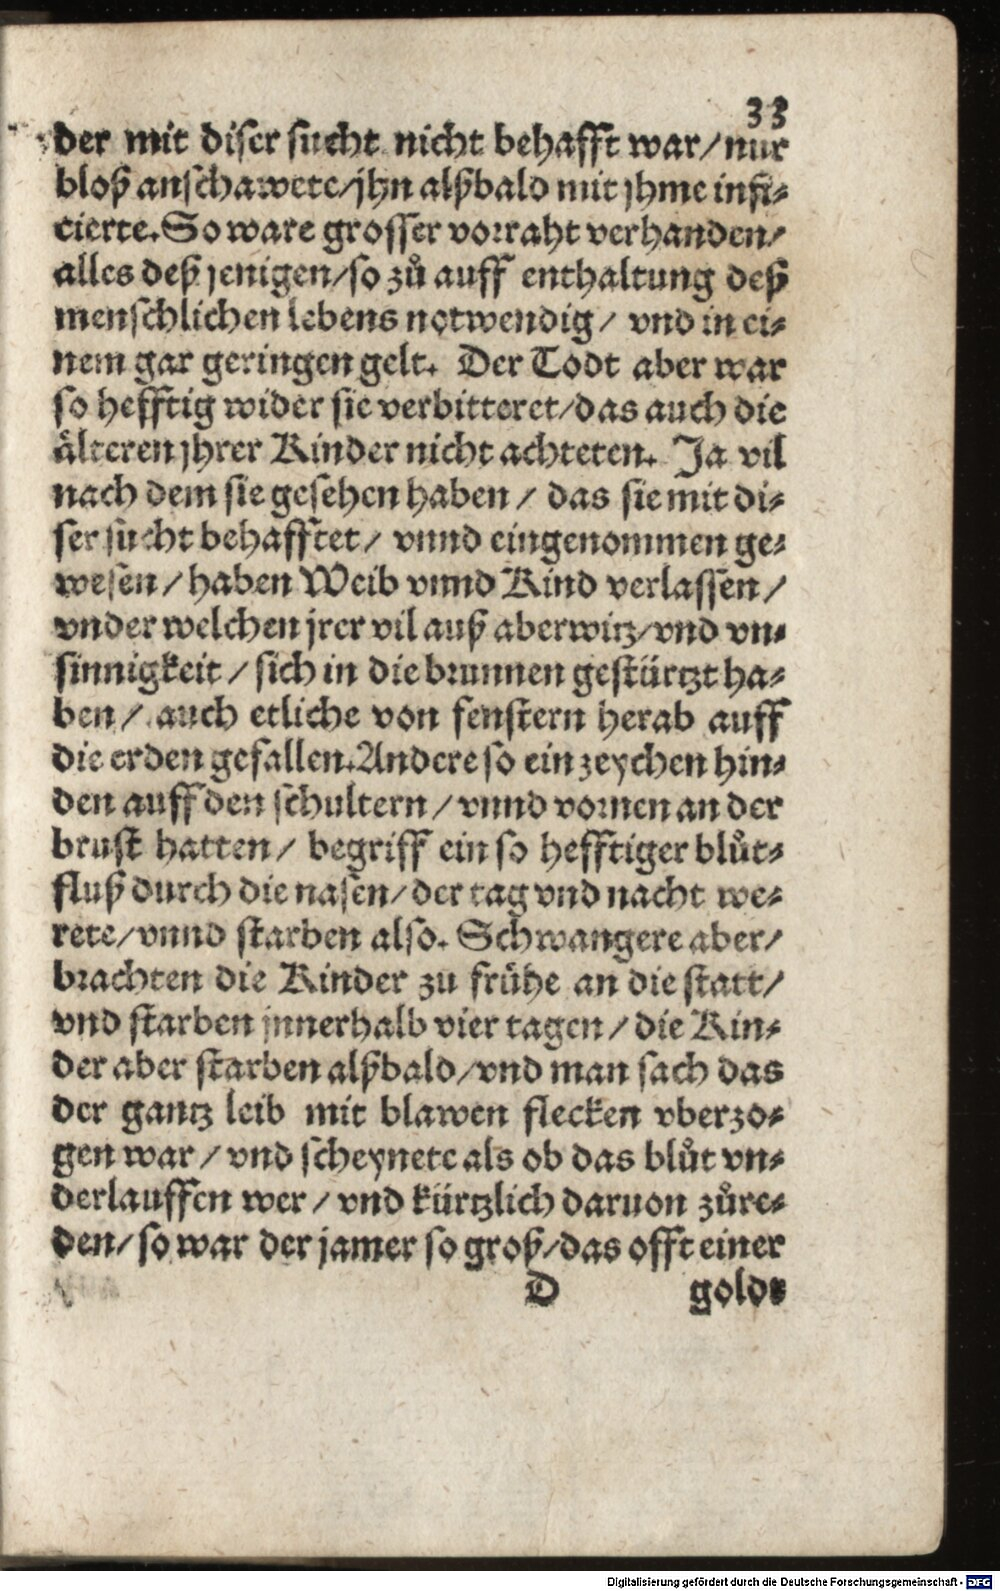 33
der mit diser sucht nicht behafft war/nur
bloß anschawete/jhn alßbald mit jhme infi⸗
cierte. So ware grosser vorraht verhanden/
alles deß jenigen/so zů auff enthaltung deß
menschlichen lebens notwendig/ vnd in ei⸗
nem gar geringen gelt. Der Todt aber war
so hefftig wider sie verbitteret/das auch die
älteren jhrer Kinder nicht achteten. Ja vil
nach dem sie gesehen haben/ das sie mit di⸗
ser sucht behafftet/ vnnd eingenommen ge⸗
wesen/haben Weib vnnd Kind verlassen/
vnder welchen jrer vil auß aberwitz/vnd vn⸗
sinnigkeit/sich in die brunnen gestürtzt ha⸗
ben/ auch etliche von fenstern herab auff
die erden gefallen. Andere so ein zeychen hin⸗
den auff den schultern/vnnd vornen an der
brust hatten/ begriff ein so hefftiger blůt⸗
fluß durch die nasen/der tag vnd nacht we⸗
rete/vnnd starben also. Schwangere aber/
brachten die Kinder zu frühe an die statt/
vnd starben jnnerhalb vier tagen/die Kin⸗
der aber starben alßbald/vnd man sach das
der gantz leib mit blawen flecken vberzo⸗
gen war/vnd scheynete als ob das blůt vn⸗
derlauffen wer/vnd kürtzlich daruon zůre⸗
den/so war der jamer so groß/das offt einer
D gold⸗
Digitalisierung gefördert durch die Deutsche Forschungsgemeinschaft - DFG